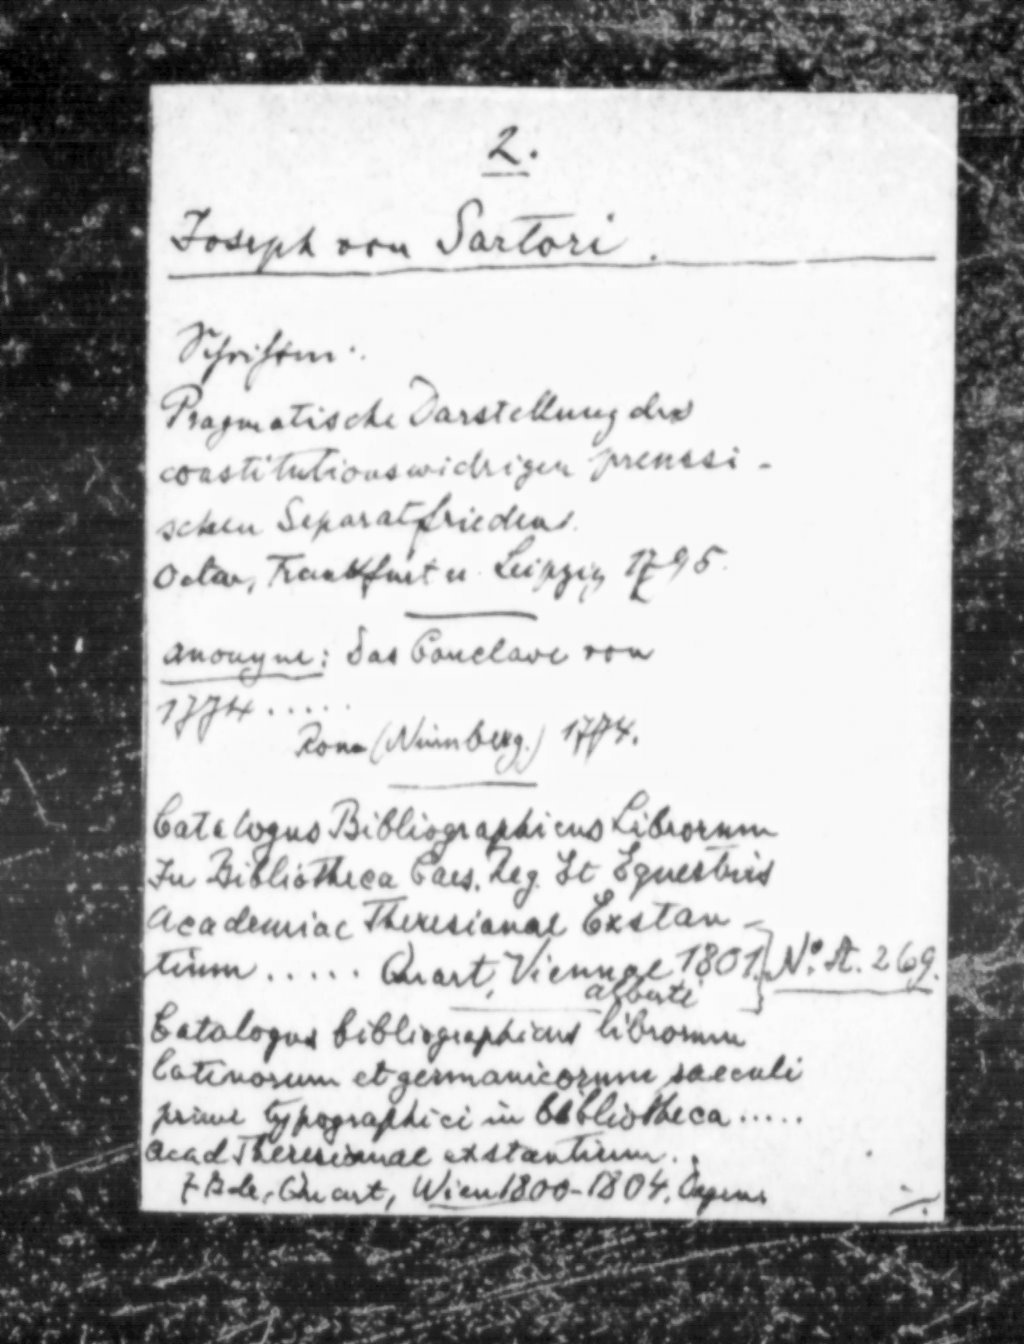 2.
Joseph von Sartori.
Schriften.
Pragmatische Darstellung des
constitutionswidrigen preussi-
schen Separatfriedens.
Octav, Frankfurt u. Leipzig 1795.
anonyme: Das Conclave von
1774.....
Rom (Nürnberg.) 1774.
Catalogus Bibliographicus Librorum
In Bibliotheca Caes. Reg. Et Equestris
Academiae Theresianae Exstan-
tium..... Quart, Viennae 1801. No. A. 269.
Alberti
Catalogus bibliographicus librorum
latinorum et germanicorum saeculi
primi typographici in bibliotheca.....
Acad Theresianae exstantium..
7 Bde, Quart, Wien 1800-1804.